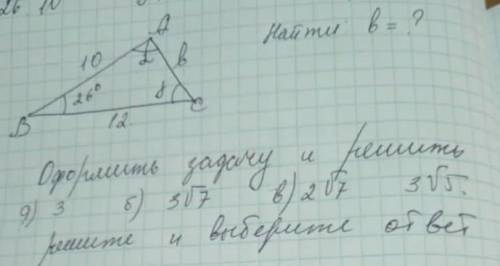 26 10
Найти b = ?
A
10
α
b
26°
γ
B
12
C
Оформить задачу и решить
а) 3 б) 3√7 в) 2√7 3√5.
решите и выберите ответ